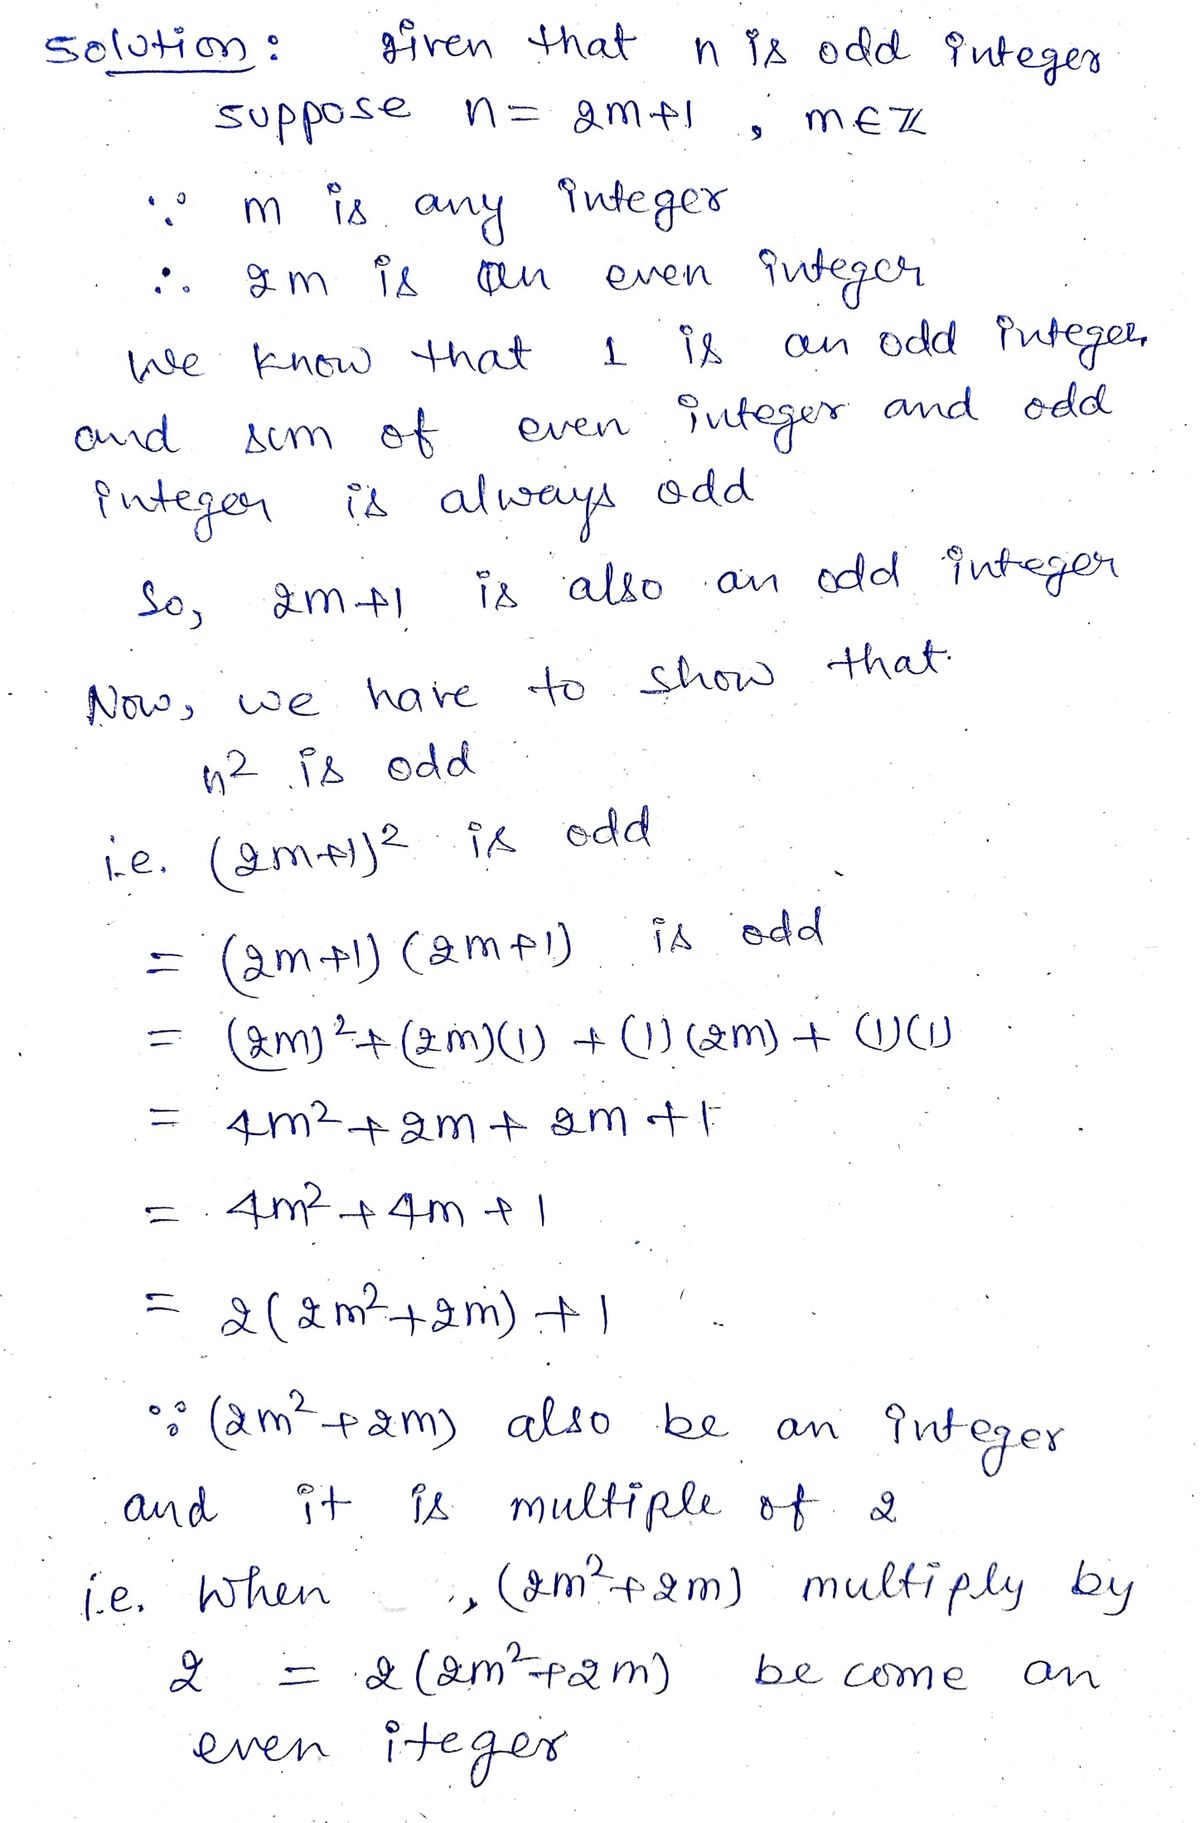 Solution: given that n is odd integer
suppose n = 2m+1 , m∈ℤ
∵ m is any integer
∴ 2m is an even integer
We know that 1 is an odd integer
and sum of even integer and odd
integer is always odd
So, 2m+1 is also an odd integer
Now, we have to show that
n² is odd
i.e. (2m+1)² is odd
= (2m+1) (2m+1) is odd
= (2m)² + (2m)(1) + (1)(2m) + (1)(1)
= 4m² + 2m + 2m + 1
= 4m² + 4m + 1
= 2(2m² + 2m) + 1
∵ (2m² + 2m) also be an integer
and it is multiple of 2
i.e. When , (2m² + 2m) multiply by
2 = 2(2m² + 2m) be come an
even iteger